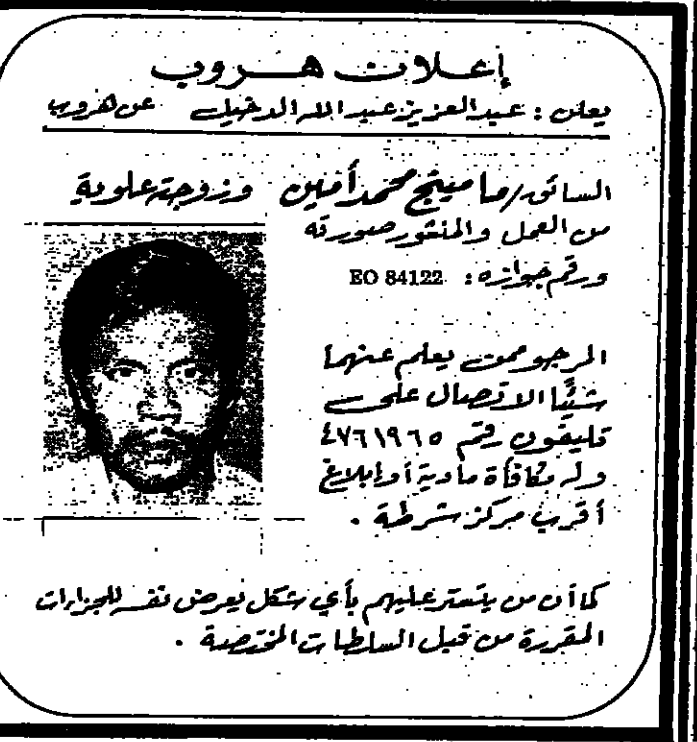 إعلان هروب
يعلن : عبدالعزيز عبدالله الدخيل عن هروب
السائق/ مامينج محمد أمين وزوجته علوية
من العمل والمنشور صورته
ورقم جوازه : EO 84122
المرجو ممن يعلم عنهما
شيئًا الاتصال على
تليفون رقم ٤٧٦١٩٦٥
وله مكافأة مادية أو إبلاغ
أقرب مركز شرطة .
كما أن من يتستر عليهم بأي شكل يعرض نفسه للجزاءات
المقررة من قبل السلطات المختصة .